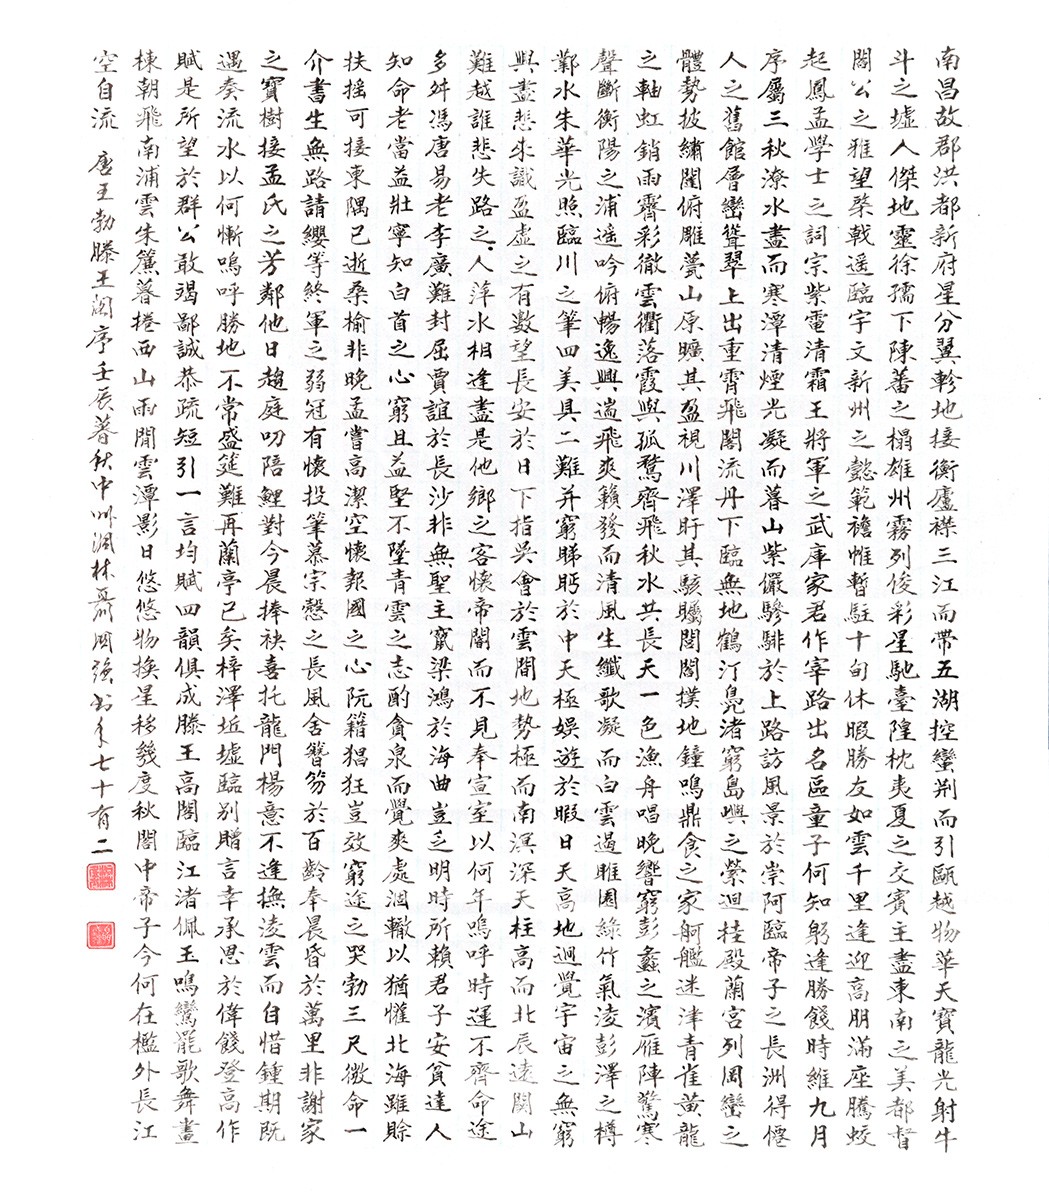 南昌故郡洪都新府星分翼軫地接衡廬襟三江而帶五湖控蠻荊而引甌越物華天寶龍光射牛
斗之墟人傑地靈徐孺下陳蕃之榻雄州霧列俊彩星馳臺隍枕夷夏之交賓主盡東南之美都督
閻公之雅望棨戟遥臨宇文新州之懿範襜帷暫駐十旬休暇勝友如雲千里逢迎高朋滿座騰蛟
起鳳孟學士之詞宗紫電清霜王將軍之武庫家君作宰路出名區童子何知躬逢勝餞時維九月
序屬三秋潦水盡而寒潭清煙光凝而暮山紫儼驂騑於上路訪風景於崇阿臨帝子之長洲得僊
人之舊館層巒聳翠上出重霄飛閣流丹下臨無地鶴汀鳧渚窮島嶼之縈迴桂殿蘭宮列岡巒之
體勢披繡闥俯雕甍山原曠其盈視川澤盱其駭矚閭閻撲地鐘鳴鼎食之家舸艦迷津青雀黃龍
之軸虹銷雨霽彩徹雲衢落霞與孤鶩齊飛秋水共長天一色漁舟唱晚響窮彭蠡之濱雁陣驚寒
聲斷衡陽之浦遥吟俯暢逸興遄飛爽籟發而清風生纖歌凝而白雲遏睢園綠竹氣淩彭澤之樽
鄴水朱華光照臨川之筆四美具二難并窮睇眄於中天極娛遊於暇日天高地迥覺宇宙之無窮
興盡悲來識盈虛之有數望長安於日下指吳會於雲間地勢極而南溟深天柱高而北辰遠関山
難越誰悲失路之人萍水相逢盡是他鄉之客懷帝閽而不見奉宣室以何年嗚呼時運不齊命途
多舛馮唐易老李廣難封屈賈誼於長沙非無聖主竄梁鴻於海曲豈乏明時所賴君子安貧達人
知命老當益壯寧知白首之心窮且益堅不墜青雲之志酌貪泉而覺爽處涸轍以猶懽北海雖賒
扶搖可接東隅已逝桑榆非晚孟嘗高潔空懷報國之心阮籍猖狂豈效窮途之哭勃三尺微命一
介書生無路請纓等終軍之弱冠有懷投筆慕宗慤之長風舍簪笏於百齡奉晨昏於萬里非謝家
之寶樹接孟氏之芳鄰他日趨庭叨陪鯉對今晨捧袂喜托龍門楊意不逢撫淩雲而自惜鍾期既
遇奏流水以何慚嗚呼勝地不常盛筵難再蘭亭已矣梓澤坵墟臨別贈言幸承恩於偉餞登高作
賦是所望於群公敢竭鄙誠恭疏短引一言均賦四韻俱成滕王高閣臨江渚佩玉鳴鸞罷歌舞畫
棟朝飛南浦雲朱簾暮捲西山雨閒雲潭影日悠悠物換星移幾度秋閣中帝子今何在檻外長江
空自流 唐王勃滕王閣序壬辰暮秋中州泗林聶國強書年七十有二